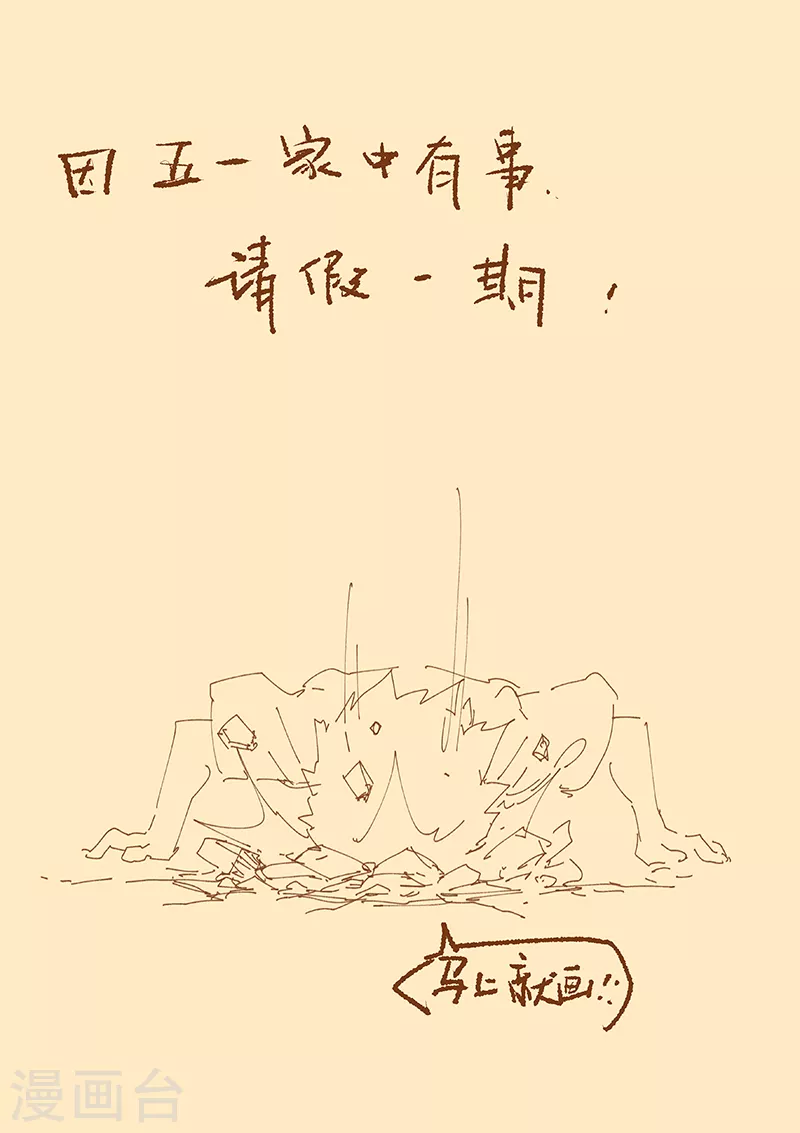 因五一家中有事.
请假一期!
马上就画!!
漫画台